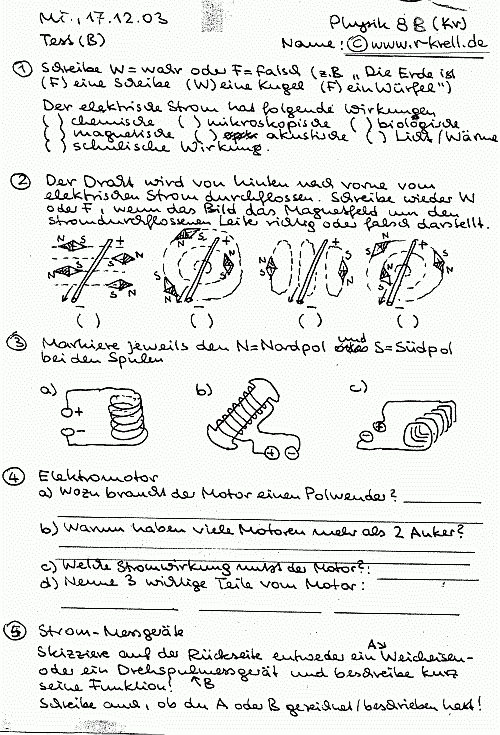 Mi., 17.12.03 Physik 8B (Kr)
Test (B) Name: © www.r-krell.de
① Schreibe W = wahr oder F = falsch (z.B. „Die Erde ist
(F) eine Scheibe (W) eine Kugel (F) ein Würfel")
Der elektrische Strom hat folgende Wirkungen
( ) chemische ( ) mikroskopische ( ) biologische
( ) magnetische ( ) akustische ( ) Licht/Wärme
( ) schulische Wirkung.
② Der Draht wird von hinten nach vorne vom
elektrischen Strom durchflossen. Schreibe wieder W
oder F, wenn das Bild das Magnetfeld um den
stromdurchflossenen Leiter richtig oder falsch darstellt.
N S + S N + N S N + S + N
N S N S S N S N S N
( ) ( ) ( ) ( )
③ Markiere jeweils den N=Nordpol und S=Südpol
bei den Spulen
a) b) c)
+ - + - - +
④ Elektromotor
a) Wozu braucht der Motor einen Polwender?
b) Warum haben viele Motoren mehr als 2 Anker?
c) Welche Stromwirkung nutzt der Motor?:
d) Nenne 3 wichtige Teile vom Motor:
⑤ Strom-Messgeräte
Skizziere auf der Rückseite entweder ein A↘ Weicheisen-
oder ein Drehspulmessgerät und beschreibe kurz
seine Funktion! ↖B
Schreibe auf, ob du A oder B gezeichnet/beschrieben hast!